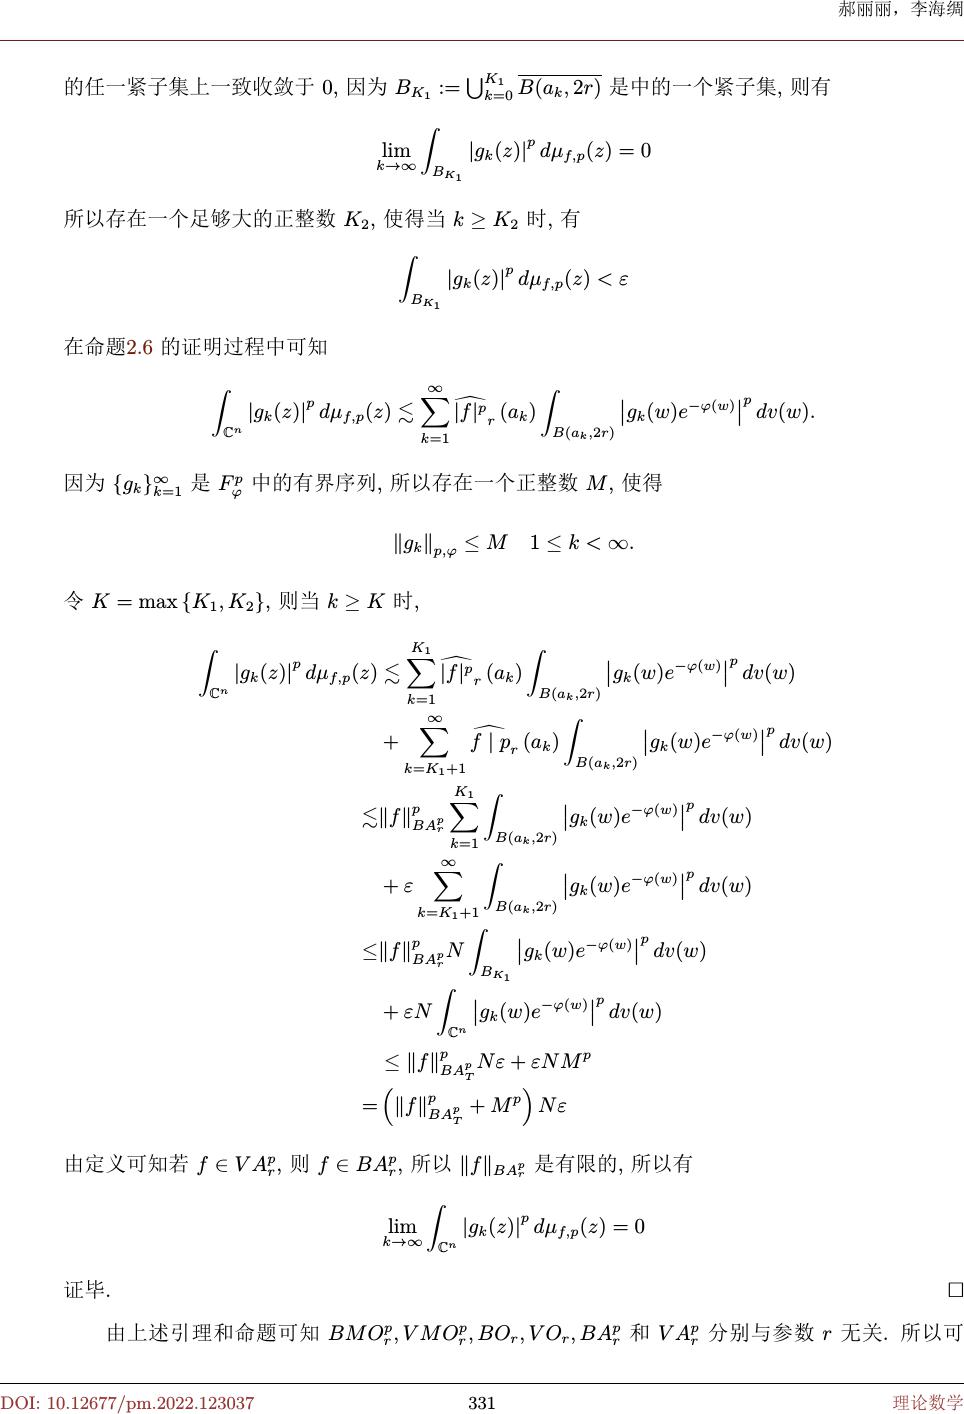 郝丽丽，李海绸
的任一紧子集上一致收敛于 0, 因为 $B_{K_1} := \bigcup_{k=0}^{K_1} \overline{B(a_k, 2r)}$ 是中的一个紧子集, 则有
$\lim_{k\to\infty} \int_{B_{K_1}} |g_k(z)|^p \, d\mu_{f,p}(z) = 0$
所以存在一个足够大的正整数 $K_2$, 使得当 $k \geq K_2$ 时, 有
$\int_{B_{K_1}} |g_k(z)|^p \, d\mu_{f,p}(z) < \varepsilon$
在命题2.6 的证明过程中可知
$\int_{\mathbb{C}^n} |g_k(z)|^p \, d\mu_{f,p}(z) \lesssim \sum_{k=1}^{\infty} \widehat{|f|^p}_r (a_k) \int_{B(a_k,2r)} \left|g_k(w)e^{-\varphi(w)}\right|^p dv(w).$
因为 $\{g_k\}_{k=1}^{\infty}$ 是 $F_\varphi^p$ 中的有界序列, 所以存在一个正整数 $M$, 使得
$\|g_k\|_{p,\varphi} \leq M \quad 1 \leq k < \infty.$
令 $K = \max\{K_1, K_2\}$, 则当 $k \geq K$ 时,
$\int_{\mathbb{C}^n} |g_k(z)|^p \, d\mu_{f,p}(z) \lesssim \sum_{k=1}^{K_1} \widehat{|f|^p}_r (a_k) \int_{B(a_k,2r)} \left|g_k(w)e^{-\varphi(w)}\right|^p dv(w)$
$+ \sum_{k=K_1+1}^{\infty} \widehat{f \mid p}_r (a_k) \int_{B(a_k,2r)} \left|g_k(w)e^{-\varphi(w)}\right|^p dv(w)$
$\lesssim \|f\|_{BA_r^p}^p \sum_{k=1}^{K_1} \int_{B(a_k,2r)} \left|g_k(w)e^{-\varphi(w)}\right|^p dv(w)$
$+ \varepsilon \sum_{k=K_1+1}^{\infty} \int_{B(a_k,2r)} \left|g_k(w)e^{-\varphi(w)}\right|^p dv(w)$
$\leq \|f\|_{BA_r^p}^p N \int_{B_{K_1}} \left|g_k(w)e^{-\varphi(w)}\right|^p dv(w)$
$+ \varepsilon N \int_{\mathbb{C}^n} \left|g_k(w)e^{-\varphi(w)}\right|^p dv(w)$
$\leq \|f\|_{BA_T^p}^p N\varepsilon + \varepsilon N M^p$
$= \left(\|f\|_{BA_T^p}^p + M^p\right) N\varepsilon$
由定义可知若 $f \in VA_r^p$, 则 $f \in BA_r^p$, 所以 $\|f\|_{BA_r^p}$ 是有限的, 所以有
$\lim_{k\to\infty} \int_{\mathbb{C}^n} |g_k(z)|^p \, d\mu_{f,p}(z) = 0$
证毕. □
由上述引理和命题可知 $BMO_r^p, VMO_r^p, BO_r, VO_r, BA_r^p$ 和 $VA_r^p$ 分别与参数 $r$ 无关. 所以可
DOI: 10.12677/pm.2022.123037 331 理论数学